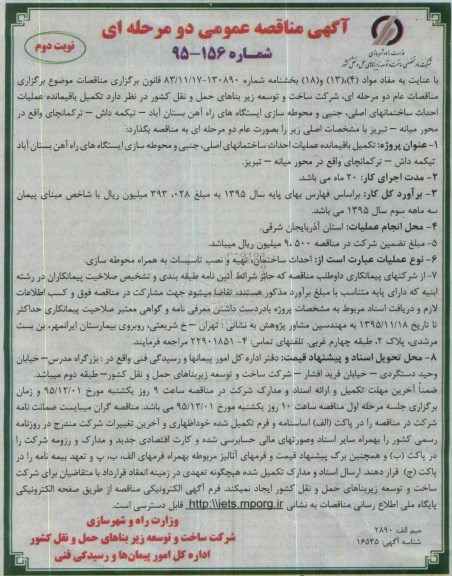 آگهی مناقصه عمومی دو مرحله ای
شماره ۱۵۶-۹۵
نوبت دوم
وزارت راه و شهرسازی
با عنایت به مفاد مواد (۴)،(۱۳) و(۱۸) بخشنامه شماره ۱۳۰۸۹۰-۸۳/۱۱/۱۷ قانون برگزاری مناقصات موضوع برگزاری
مناقصات عام دو مرحله ای، شرکت ساخت و توسعه زیر بناهای حمل و نقل کشور در نظر دارد تکمیل باقیمانده عملیات
احداث ساختمانهای اصلی، جنبی و محوطه سازی ایستگاه های راه آهن بستان آباد – تیکمه داش – ترکمانچای واقع در
محور میانه – تبریز با مشخصات اصلی زیر را بصورت عام دو مرحله ای به مناقصه بگذارد:
۱-عنوان پروژه: تکمیل باقیمانده عملیات احداث ساختمانهای اصلی، جنبی و محوطه سازی ایستگاه های راه آهن بستان آباد
تیکمه داش – ترکمانچای واقع در محور میانه – تبریز.
۲- مدت اجرای کار: ۲۰ ماه می باشد.
۳- برآورد کل کار: براساس فهارس بهای پایه سال ۱۳۹۵ به مبلغ ۳۹۳،۰۲۸ میلیون ریال با شاخص مبنای پیمان
سه ماهه سوم سال ۱۳۹۵ می باشد.
۴- محل انجام عملیات: استان آذربایجان شرقی.
۵- مبلغ تضمین شرکت در مناقصه ۹،۵۰۰ میلیون ریال میباشد.
۶- نوع عملیات عبارت است از: احداث ساختمان، تهیه و نصب تاسیسات به همراه محوطه سازی.
۷- از شرکتهای پیمانکاری داوطلب مناقصه که حائز شرائط آئین نامه طبقه بندی و تشخیص صلاحیت پیمانکاران در رشته
ابنیه که دارای پایه متناسب با مبلغ برآورد مذکور هستند، تقاضا میشود جهت مشارکت در مناقصه فوق و کسب اطلاعات
لازم و دریافت اسناد مربوط به مشخصات پروژه بادردست داشتن معرفی نامه و گواهی معتبر صلاحیت پیمانکاری حداکثر
تا تاریخ ۱۳۹۵/۱۱/۱۸ به مهندسین مشاور پژوهش به نشانی : تهران – خ شریعتی، روبروی بیمارستان ایرانمهر، بن بست
مرشدی، پلاک ۲، طبقه چهارم غربی. تلفنهای تماس: ۴- ۲۲۹۰۱۸۵۱ مراجعه فرمایند.
۸- محل تحویل اسناد و پیشنهاد قیمت: دفتر اداره کل امور پیمانها و رسیدگی فنی واقع در : بزرگراه مدرس– خیابان
وحید دستگردی – خیابان فرید افشار – شرکت ساخت و توسعه زیربناهای حمل و نقل کشور– طبقه دوم میباشد.
ضمناً آخرین مهلت تکمیل و ارائه اسناد و مدارک شرکت در مناقصه ساعت ۹ روز یکشنبه مورخ ۹۵/۱۲/۰۱ و زمان
برگزاری جلسه مرحله اول مناقصه ساعت ۱۰ روز یکشنبه مورخ ۹۵/۱۲/۰۱ می باشد. مناقصه گران میبایست ضمانت نامه
شرکت در مناقصه را در پاکت (الف) اساسنامه و فرم تکمیل شده خوداظهاری و آخرین تغییرات شرکت مندرج در روزنامه
رسمی کشور را بهمراه سایر اسناد وصورتهای مالی حسابرسی شده و کارت اقتصادی جدید و مدارک و رزومه شرکت را
در پاکت (ب) و همچنین برگ پیشنهاد قیمت و فرمهای آنالیز مربوطه بهمراه فرمهای الف، ب، پ و تعهد بیمه نامه را در
پاکت (ج) قرار دهند. ارسال اسناد و مدارک تکمیل شده هیچگونه تعهدی در زمینه انعقاد قرارداد با متقاضیان برای شرکت
ساخت و توسعه زیربناهای حمل و نقل کشور ایجاد نمیکند. فرم آگهی الکترونیکی مناقصه از طریق صفحه الکترونیکی
پایگاه ملی اطلاع رسانی مناقصات به نشانی http://iets.mporg.ir قابل دسترسی است.
وزارت راه و شهرسازی
شرکت ساخت و توسعه زیر بناهای حمل و نقل کشور
اداره کل امور پیمان‌ها و رسیدگی فنی
میم الف: ۲۸۹۰
شناسه آگهی: ۱۶۵۳۵